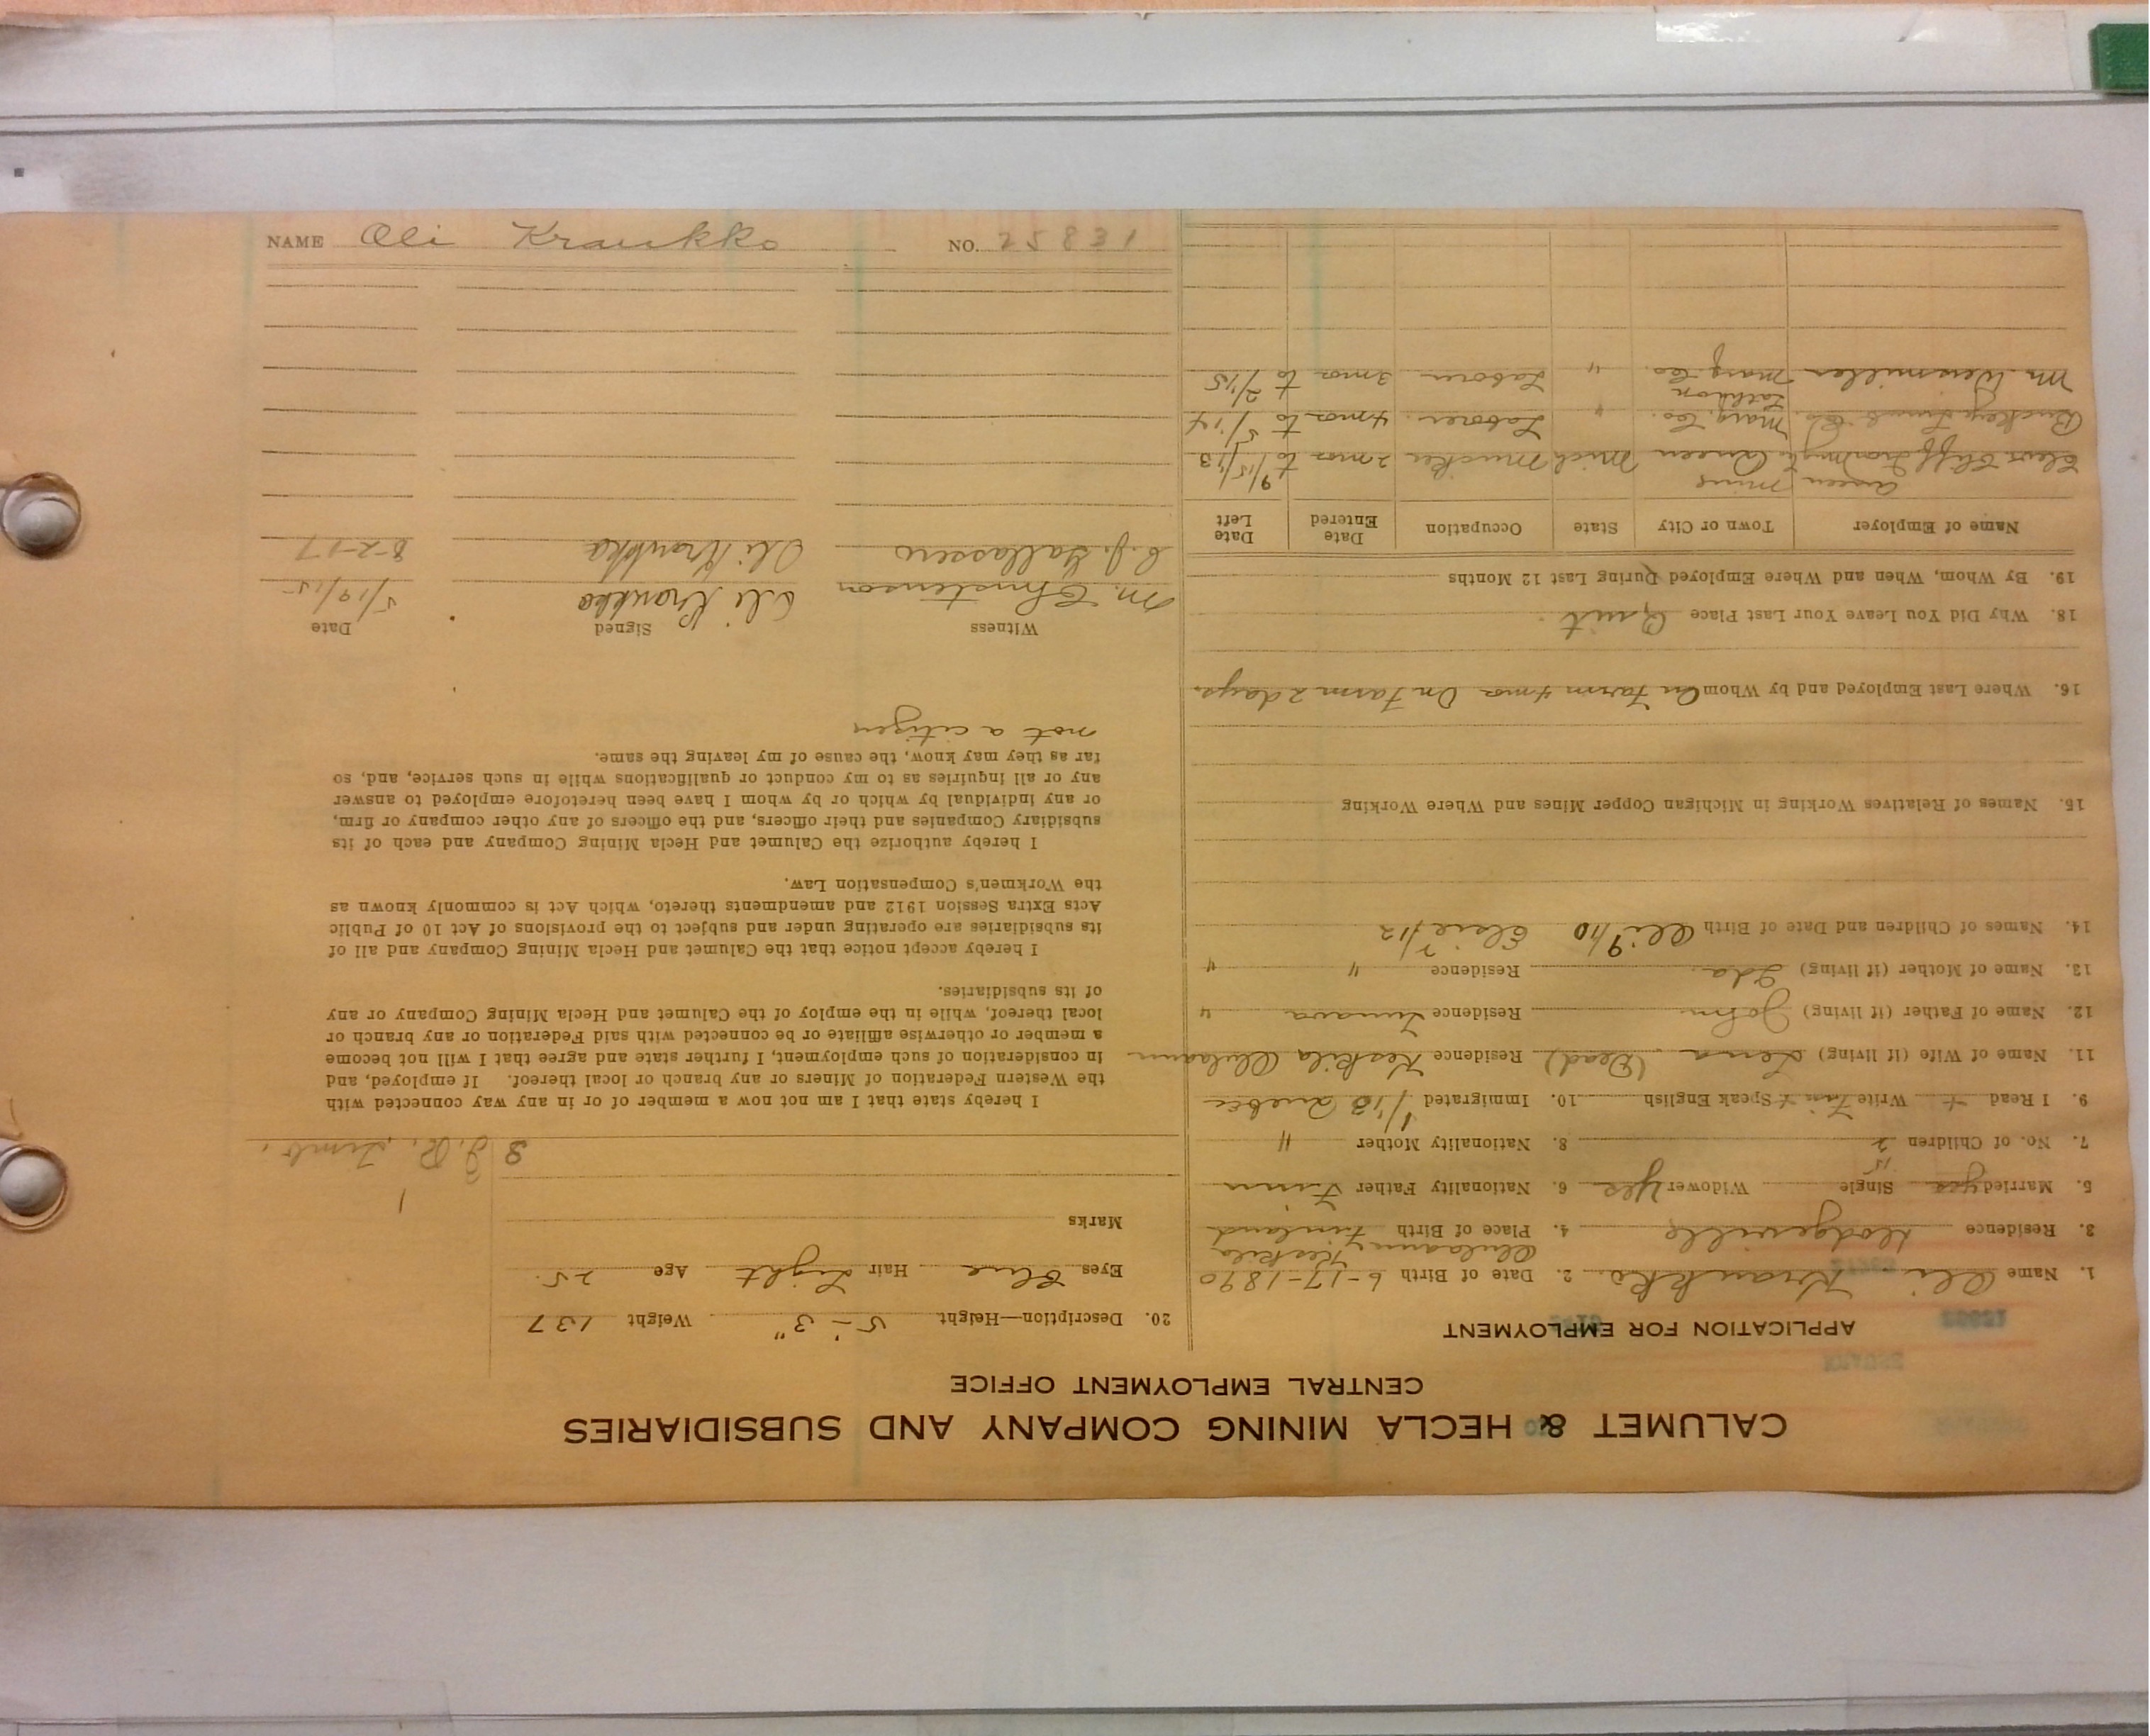 CALUMET & HECLA MINING COMPANY AND SUBSIDIARIES
CENTRAL EMPLOYMENT OFFICE
APPLICATION FOR EMPLOYMENT
1. Name Oli Kraukko 2. Date of Birth 6-17-1890
3. Residence Dodgeville 4. Place of Birth Finland
5. Married yes Single Widower yes 6. Nationality Father Finn
7. No. of Children 2 8. Nationality Mother "
9. I Read + Write Finn + Speak English 10. Immigrated 1/13 Quebec
11. Name of Wife (if living) Lena (Dead) Residence Keskila
12. Name of Father (if living) John Residence "
13. Name of Mother (if living) Ida Residence " "
14. Names of Children and Date of Birth Oli 9/10 Elsie 7/12
15. Names of Relatives Working in Michigan Copper Mines and Where Working
16. Where Last Employed and by Whom On Farm 4 mos On Farm 2 days.
18. Why Did You Leave Your Last Place Quit.
19. By Whom, When and Where Employed During Last 12 Months
Name of Employer Town or City State Occupation Date Entered Date Left
Queen Mine
Clev. Cliff Iron Queen Mich Mucker 2 mos to 9/15/13
Marq. Co. " Laborer. 4 mos to 5/14
Mr. Weismiller Marq. Co. " Laborer 3 mos to 2/15
20. Description—Height 5'-3" Weight 137
Eyes Blue Hair Light Age 25.
Marks
I hereby state that I am not now a member of or in any way connected with
the Western Federation of Miners or any branch or local thereof. If employed, and
in consideration of such employment, I further state and agree that I will not become
a member or otherwise affiliate or be connected with said Federation or any branch or
local thereof, while in the employ of the Calumet and Hecla Mining Company or any
of its subsidiaries.
I hereby accept notice that the Calumet and Hecla Mining Company and all of
its subsidiaries are operating under and subject to the provisions of Act 10 of Public
Acts Extra Session 1912 and amendments thereto, which Act is commonly known as
the Workmen's Compensation Law.
I hereby authorize the Calumet and Hecla Mining Company and each of its
subsidiary Companies and their officers, and the officers of any other company or firm,
or any individual by which or by whom I have been heretofore employed to answer
any or all inquiries as to my conduct or qualifications while in such service, and, so
far as they may know, the cause of my leaving the same.
not a citizen
Witness Signed Date
M. Christenson Oli Kraukko 5/19/15
C. J. Gallassero Oli Kraukka 8-2-17
NAME Oli Kraukko NO. 25831